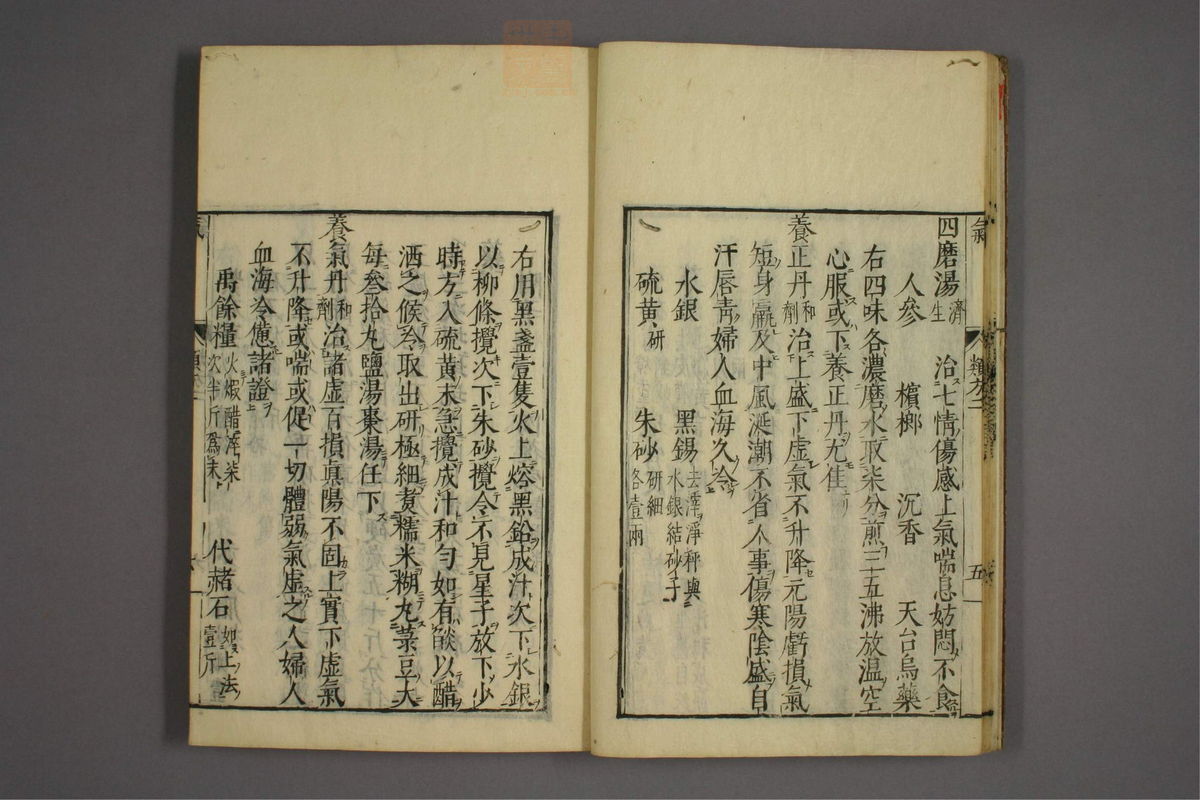 四磨湯濟生 治七情傷感上氣喘息妨悶不食
人參 檳榔 沉香 天台烏藥
右四味各濃磨水取柒分煎三五沸放温空
心服或下養正丹尤佳
養正丹和劑 治上盛下虚氣不升降元陽虧損氣
短身羸及中風涎潮不省人事傷寒陰盛自
汗唇青婦人血海久冷
水銀 黑錫去滓淨秤與水銀結砂子
硫黄研 朱砂研細各壹兩
右用黑盞壹隻火上熔黑鉛成汁次下水銀
以柳條攪次下朱砂攪令不見星子放下少
時方入硫黄末急攪成汁和勻如有燄以醋
洒之候冷取出研極細煑糯米糊丸菉豆大
每叁拾丸鹽湯棗湯任下
養氣丹和劑 治諸虚百損真陽不固上實下虚氣
不升降或喘或促一切體弱氣虚之人婦人
血海冷憊諸證
禹餘糧火煅醋淬柒次半斤爲末 代赭石如上法壹斤
氣
類方二
五